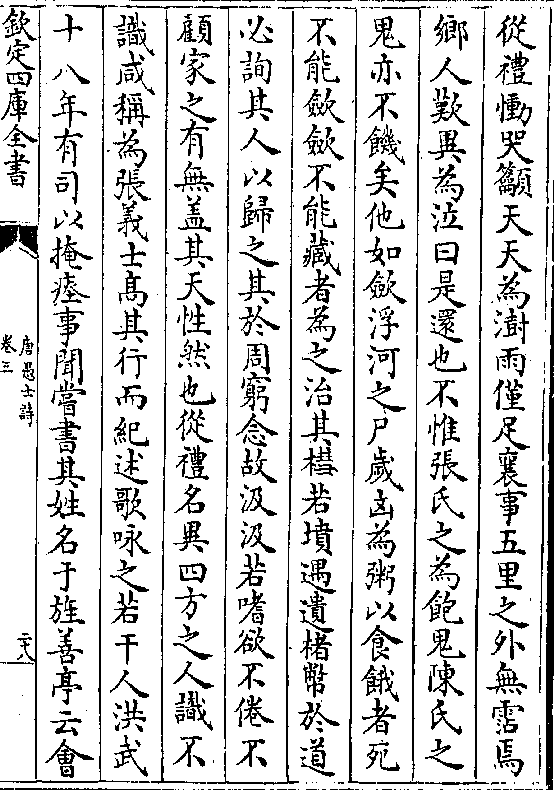 從禮慟哭籲天天為澍雨僅足襄事五里之外無霑焉
鄉人歎異為泣曰是還也不惟張氏之為飽鬼陳氏之
鬼亦不饑矣他如歛浮河之尸歲凶為粥以食餓者死
不能歛歛不能藏者為之治其槥若墳遇遺楮幣於道
必詢其人以歸之其於周窮念故汲汲若嗜欲不倦不
顧家之有無盖其天性然也從禮名異四方之人識不
識咸稱為張義士髙其行而紀述歌咏之若干人洪武
十八年有司以掩瘞事聞嘗書其姓名于旌善亭云會
欽定四庫全書
唐愚士詩
卷三
二十八